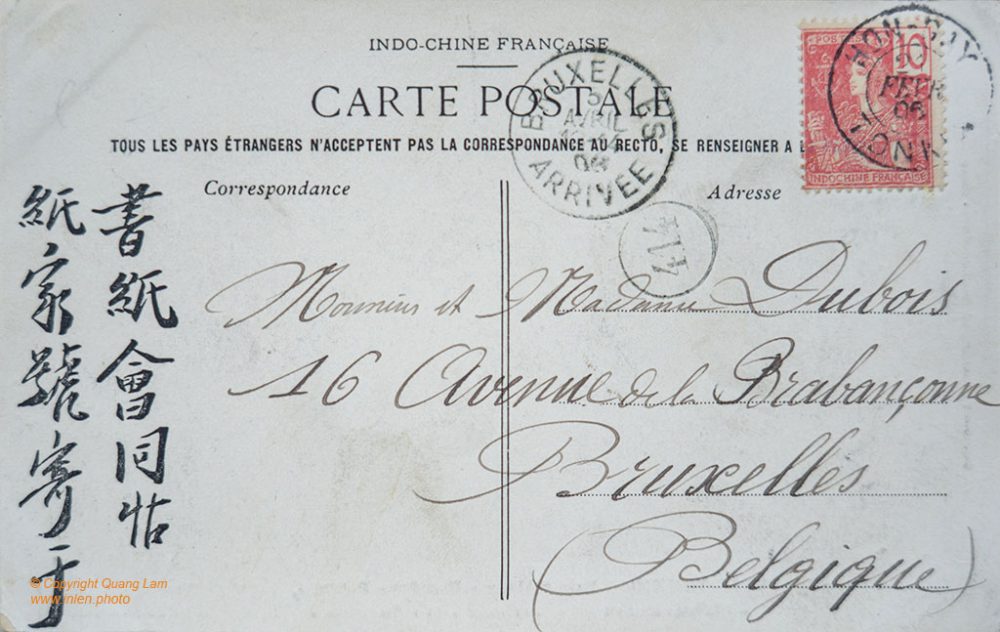 INDO-CHINE FRANÇAISE
CARTE POSTALE
TOUS LES PAYS ÉTRANGERS N'ACCEPTENT PAS LA CORRESPONDANCE AU RECTO, SE RENSEIGNER A
Correspondance
Adresse
BRUXELLES
AVRIL
ARRIVÉE
POSTES
10
INDOCHINE FRANÇAISE
HON-GAY
FEVR
06
TONK
414
Monsieur et Madame Dubois
16 Avenue de la Brabançonne
Bruxelles
(Belgique)
書紙會同
紙家號寄于
© Copyright Quang Lam
www.nlen.photo